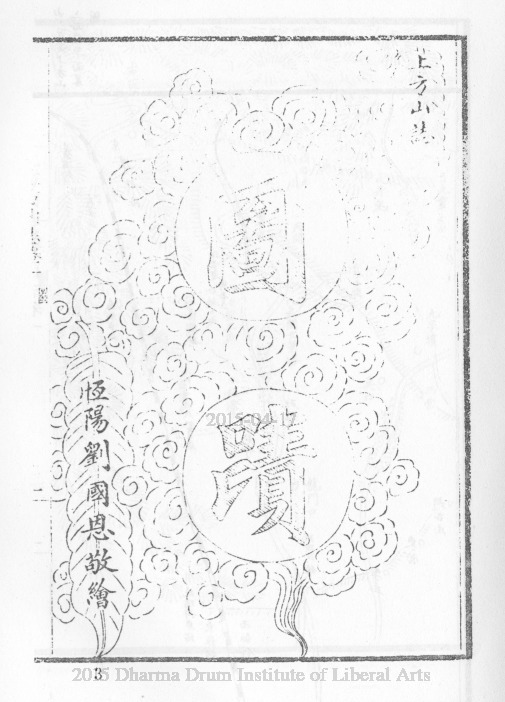 上方山誌
圖
蹟
恆陽劉國恩敬繪
2015-04-17
3
2015 Dharma Drum Institute of Liberal Arts